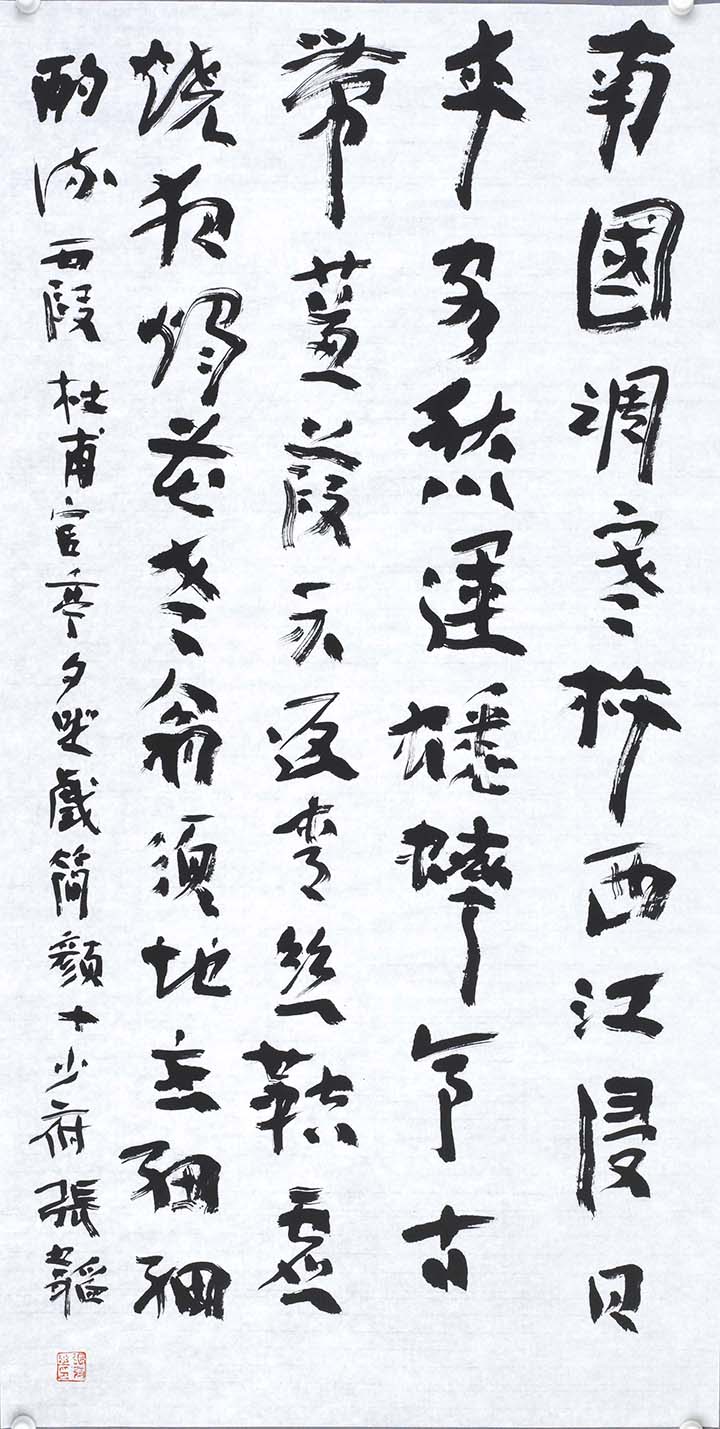 南國調寒杵西江浸日
車客愁連蟋蟀亭古
帶蒹葭不返青丝鞚虛
燒夜燭花老翁須地主細細
酌流霞杜甫官亭夕坐戲簡顏十少府張